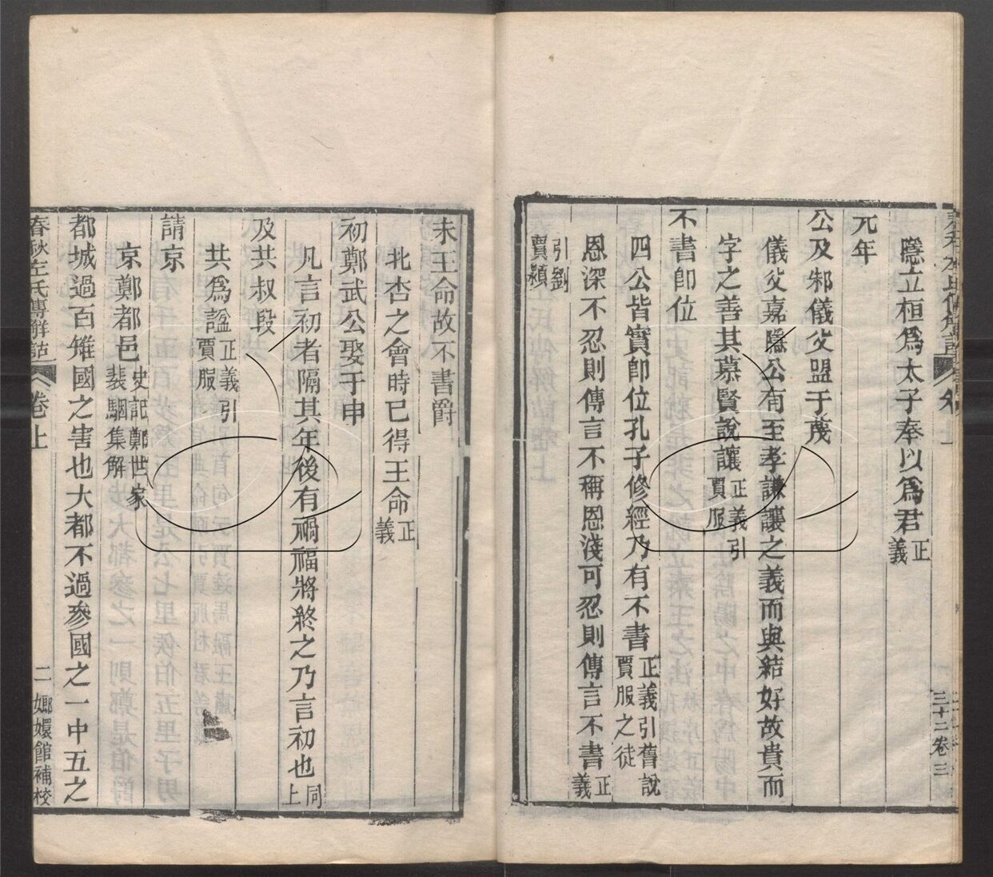 隱立桓爲太子奉以爲君正義
元年
公及邾儀父盟于蔑
儀父嘉隱公有至孝謙讓之義而與結好故貴而
字之善其慕賢說讓正義引賈服
不書卽位
四公皆實卽位孔子修經乃有不書正義引舊說賈服之徒
恩深不忍則傳言不稱恩淺可忍則傳言不書正義
引劉賈潁
三十二卷三
未王命故不書爵
北杏之會時已得王命正義
初鄭武公娶于申
凡言初者隔其年後有禍福將終之乃言初也同上
及共叔段
共爲諡正義引賈服
請京
京鄭都邑史記鄭世家裴駰集解
都城過百雉國之害也大都不過參國之一中五之
春秋左氏傳解詁 卷上 二 嫏嬛館補校